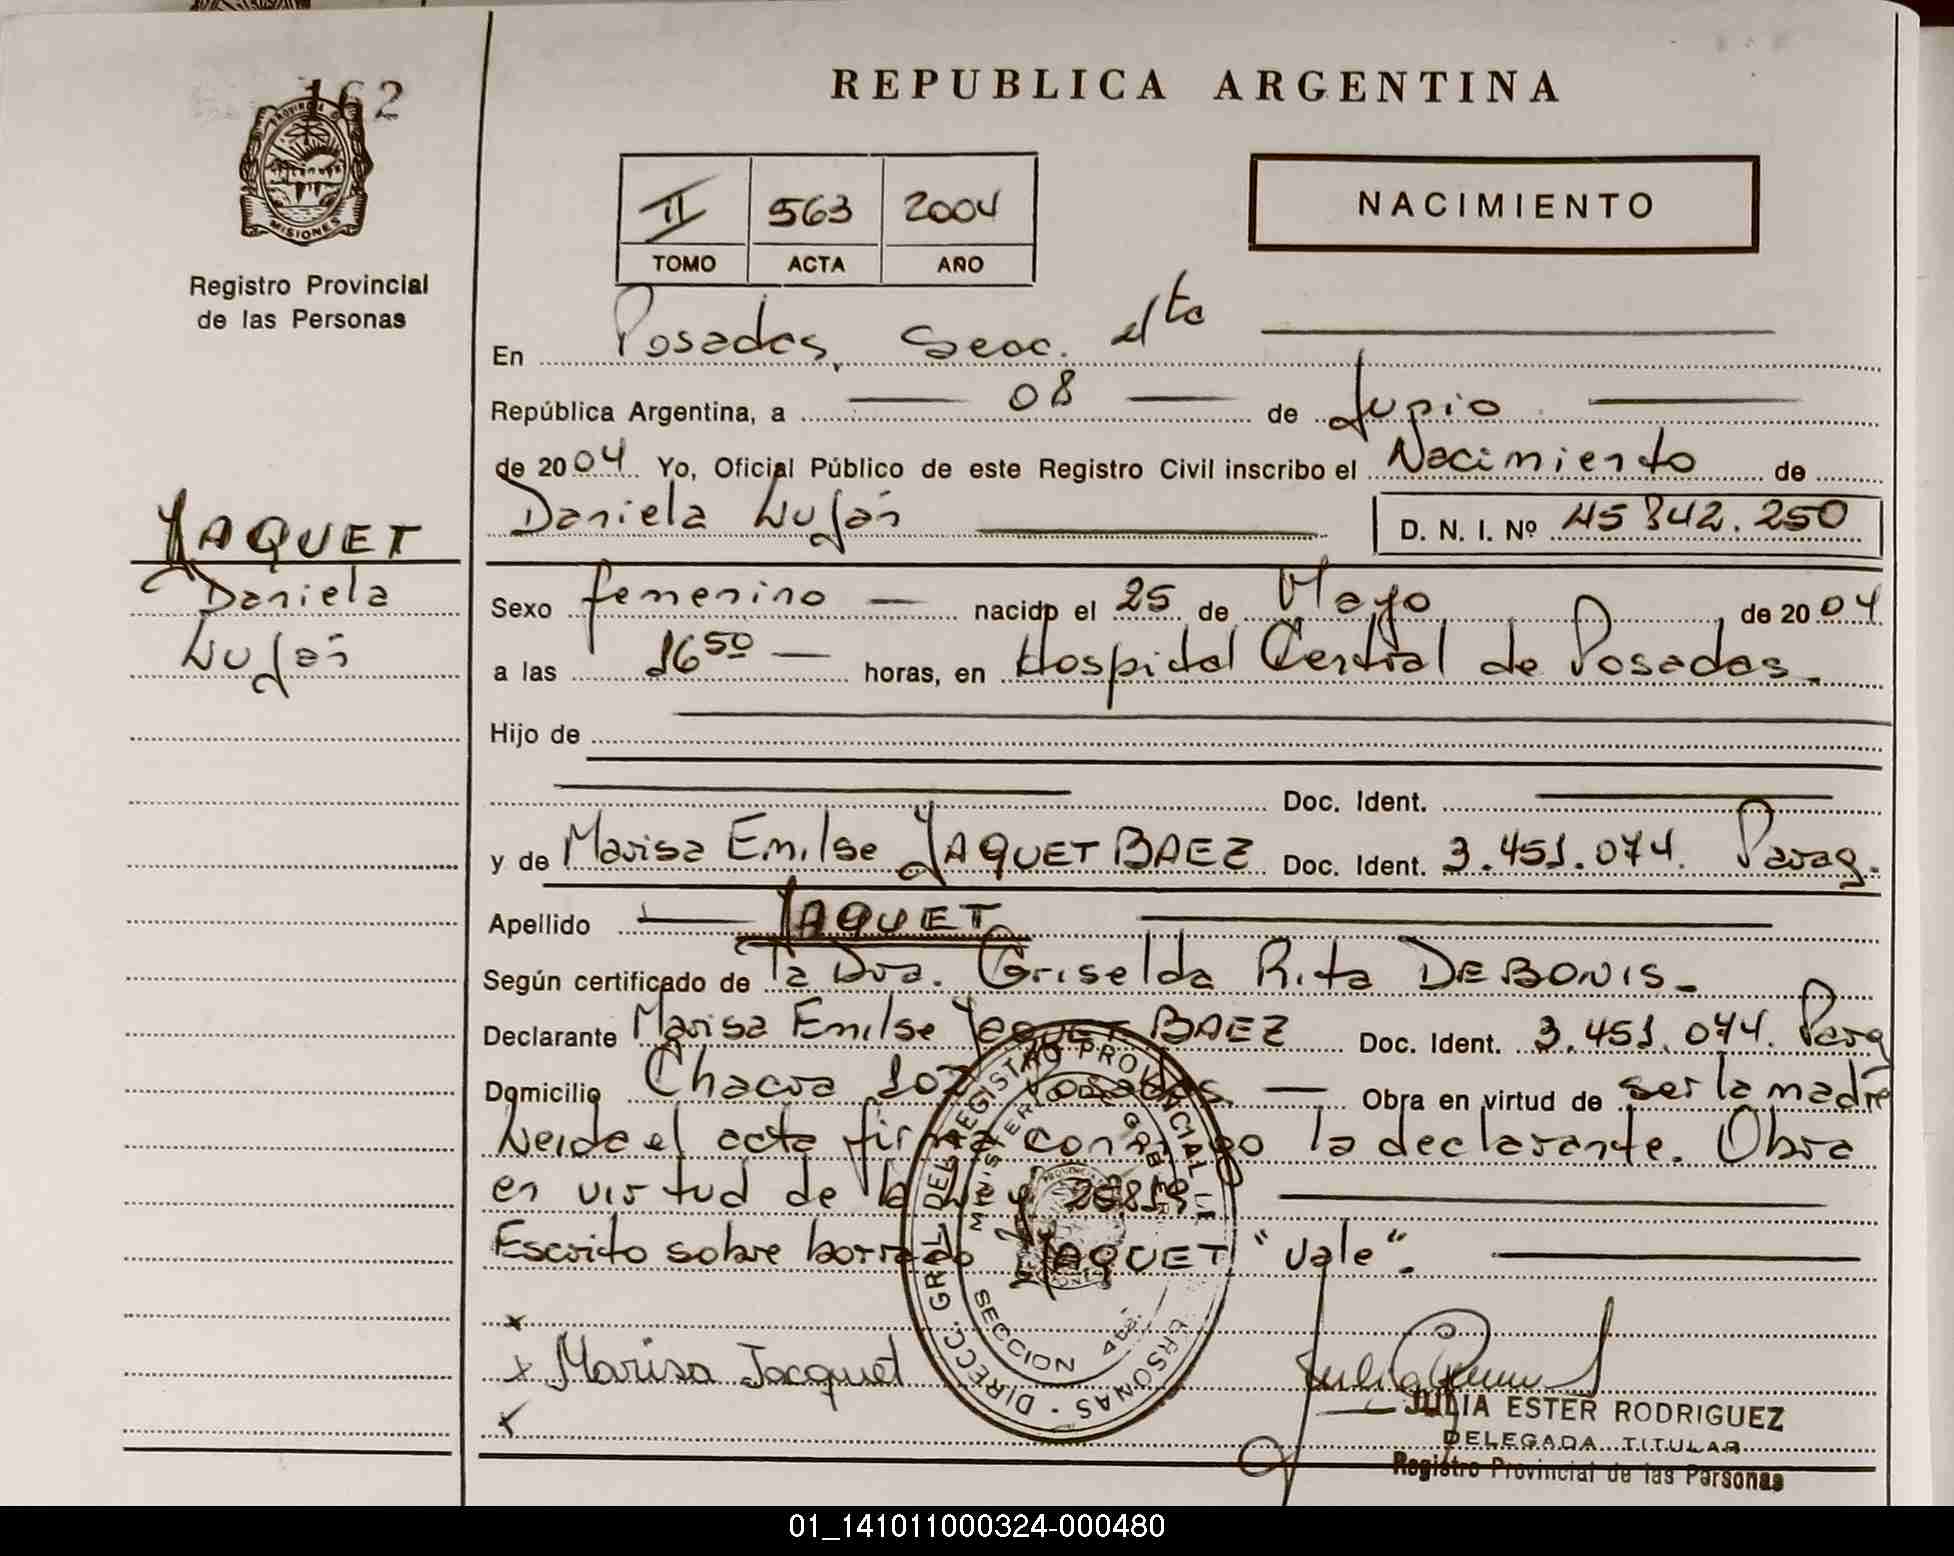 162
PROVINCIA D
MISIONES
Registro Provincial
de las Personas
REPUBLICA ARGENTINA
II 563 2004
TOMO ACTA AÑO
NACIMIENTO
En Posadas, Secc. 4ta
República Argentina, a 08 de Junio
de 2004 Yo, Oficial Público de este Registro Civil inscribo el Nacimiento de
Daniela Luján
D. N. I. Nº 45 842.250
JAQUET
Daniela
Luján
Sexo femenino nacido el 25 de Mayo de 2004
a las 16 50 horas, en Hospital Central de Posadas.
Hijo de
Doc. Ident.
y de Marisa Emilse JAQUET BAEZ Doc. Ident. 3.451.074. Parag.
Apellido JAQUET
Según certificado de la Dra. Griselda Rita DEBONIS.
Declarante Marisa Emilse Jaquet BAEZ Doc. Ident. 3.451.074. Parag
Domicilio Chacra 102 Posadas. Obra en virtud de ser la madre
Leida el acta firma conmigo la declarante. Obra
en virtud de la Ley
Escrito sobre borrado JAQUET "Vale".
DIRECC. GRAL DEL REGISTRO PROVINCIAL DE PERSONAS
MINISTERIO DE GOBIERNO
SECCION 4ta.
x
x Marisa Jacquet
x
JULIA ESTER RODRIGUEZ
DELEGADA TITULAR
Registro Provincial de las Personas
01_141011000324-000480